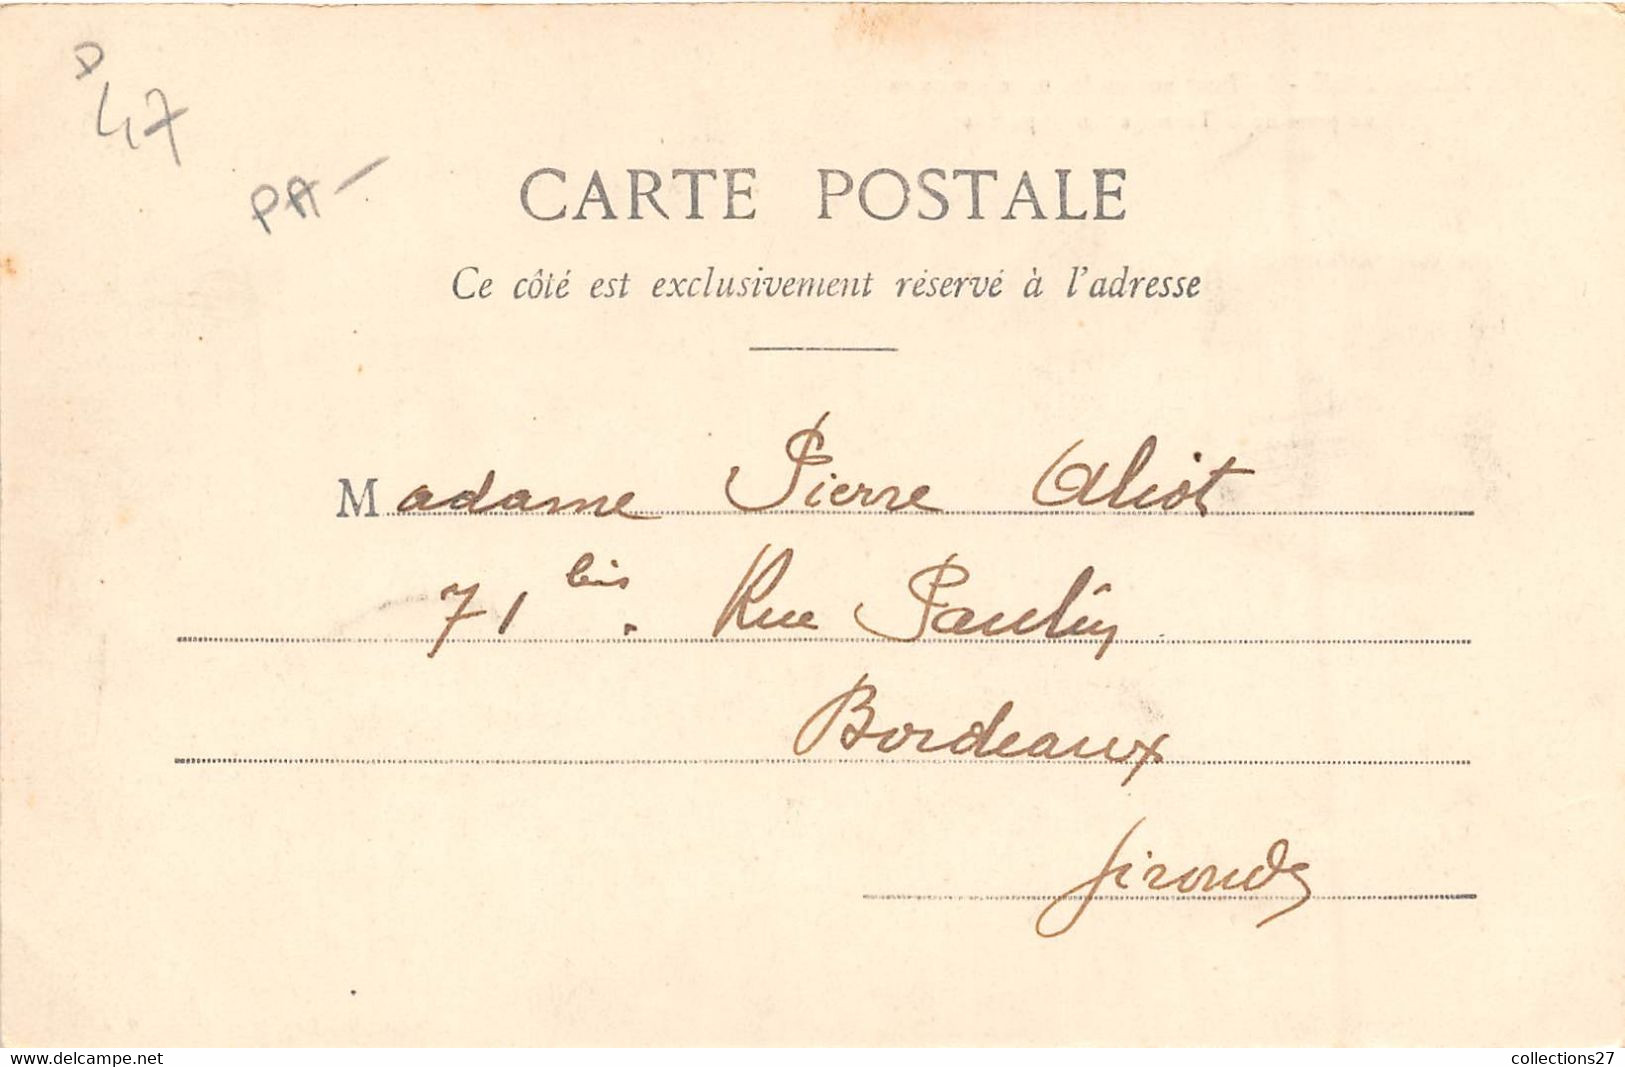 D
47
PA-
CARTE POSTALE
Ce côté est exclusivement réservé à l'adresse
Madame Pierre Aliot
71 bis. Rue Paulin
Bordeaux
Gironde
www.delcampe.net
collections27